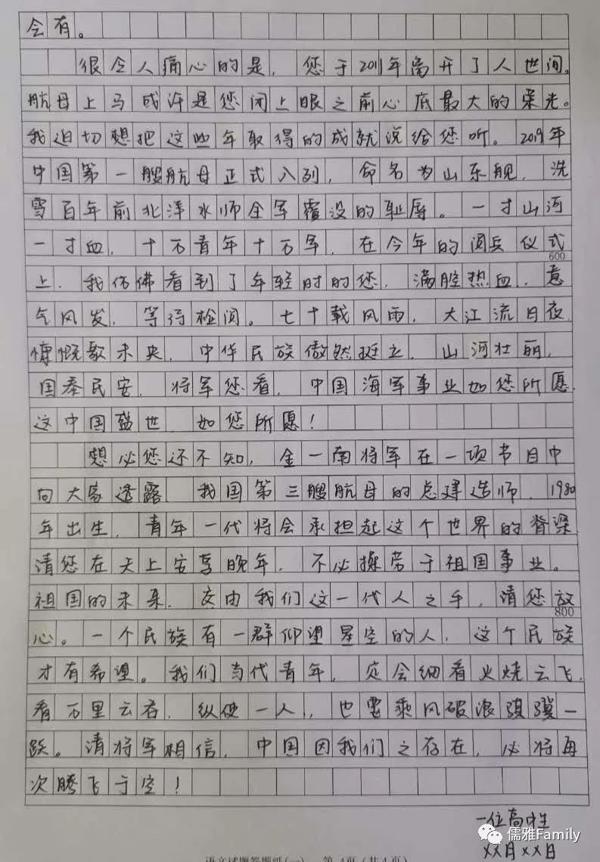 会有。
很令人痛心的是，您于2011年离开了人世间。
航母上马或许是您闭上眼之前心底最大的柔光。
我迫切想把这些年取得的成就说给您听。2019年
中国第一艘航母正式入列，命名为山东舰，洗
雪百年前北洋水师全军覆没的耻辱。一寸山河
一寸血，十万青年十万军，在今年的阅兵仪式
600
上，我仿佛看到了年轻时的您，满腔热血，意
气风发，等待检阅。七十载风雨，大江流日夜，
慷慨歌未央，中华民族傲然挺立，山河壮丽，
国泰民安，将军您看，中国海军事业如您所愿，
这中国盛世，如您所愿！
想必您还不知，金一南将军在一项节目中
向大家透露，我国第三艘航母的总建造师，1980
年出生，青年一代将会承担起这个世界的脊梁
请您在天上安享晚年，不必操劳于祖国事业。
祖国的未来，交由我们这一代人之手，请您放
800
心。一个民族有一群仰望星空的人，这个民族
才有希望。我们当代青年，定会细看火烧云飞，
看万里云吞，纵使一人，也要乘风破浪骐骥一
跃。请将军相信，中国因我们之存在，必将再
次腾飞于空！
一位高中生
XX月XX日
语文试题答题纸(一) 第4页(共4页)
儒雅Family